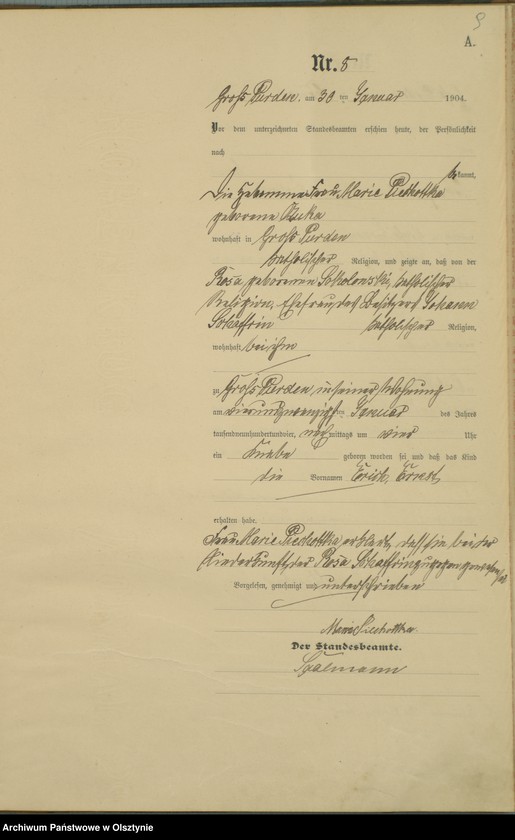 A.
Nr. 8
Groß Purden. am 30 ten Januar 1904.
Vor dem unterzeichneten Standesbeamten erschien heute, der Persönlichkeit
nach
bekannt,
die Hebamme Frau Marie Piechottka
geborene
wohnhaft in Groß Purden
katholischer Religion, und zeigte an, daß von der
Rosa geborenen Sokolowski, katholischer
Religion, Ehefrau des Besitzers Johann
Schaffrin katholischer Religion,
wohnhaft bei ihm
zu Groß Purden, in seiner Wohnung
am vierundzwanzigsten Januar des Jahres
tausendneunhundertundvier, nachmittags um vier Uhr
ein Knabe geboren worden sei und daß das Kind
die Vornamen Erich, Ernst
erhalten habe.
Frau Marie Piechottka erklärt, daß sie bei der
Niederkunft der Rosa Schaffrin zugegen gewesen sei
Vorgelesen, genehmigt und unterschrieben
Marie Piechottka
Der Standesbeamte.
Archiwum Państwowe w Olsztynie